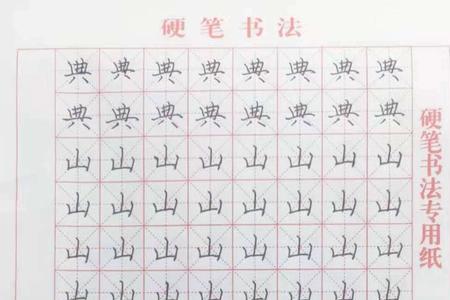 硬笔书法
典典典典典典典典
典典典典典典典典
山山山山山山山山
山山山山山山山山
山山山山山山山山
山山山山山山山山
硬笔书法专用纸